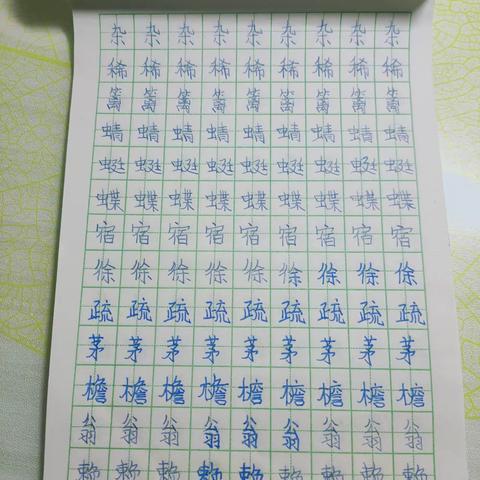 杂杂杂杂杂杂杂杂杂
稀稀稀稀稀稀稀稀稀
篱篱篱篱篱篱篱篱篱
蜻蜻蜻蜻蜻蜻蜻蜻蜻
蜓蜓蜓蜓蜓蜓蜓蜓蜓
蝶蝶蝶蝶蝶蝶蝶蝶蝶
宿宿宿宿宿宿宿宿宿
徐徐徐徐徐徐徐徐徐
疏疏疏疏疏疏疏疏疏
茅茅茅茅茅茅茅茅茅
檐檐檐檐檐檐檐檐檐
翁翁翁翁翁翁翁翁翁
赖赖赖赖赖赖赖赖赖